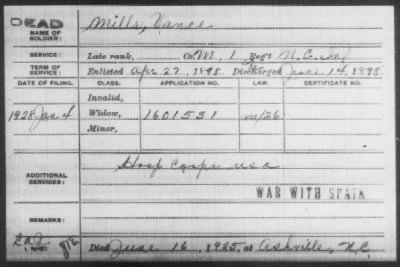 DEAD
NAME OF SOLDIER: Mills, Vance
SERVICE: Late rank, Co. M, 1 Reg't N.C. Inf
TERM OF SERVICE: Enlisted Apr 27, 1898 Discharged June 14, 1898
DATE OF FILING. CLASS. APPLICATION NO. LAW. CERTIFICATE NO.
Invalid,
1928 Jan 4 Widow, 1601531 m/26
Minor,
ADDITIONAL SERVICES: Hosp Corps USA
WAR WITH SPAIN
REMARKS:
Died June 16, 1925, at Ashville, N.C.